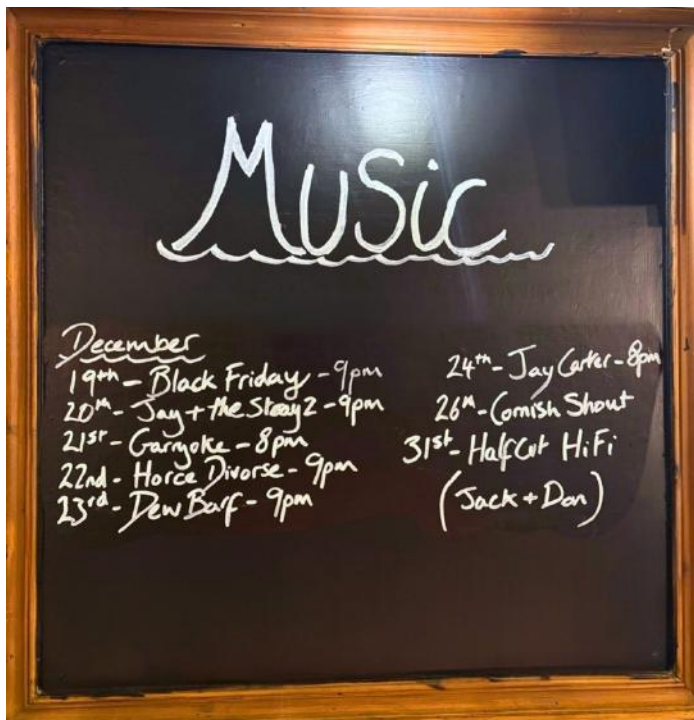 Music
December
19th - Black Friday - 9pm
20th - Jay + the Stray 2 - 9pm
21st - Garyoke - 8pm
22nd - Horce Divorse - 9pm
23rd - Dew Barf - 9pm
24th - Jay Carter - 8pm
26th - Cornish Shout
31st - HalfCut HiFi
(Jack + Dan)